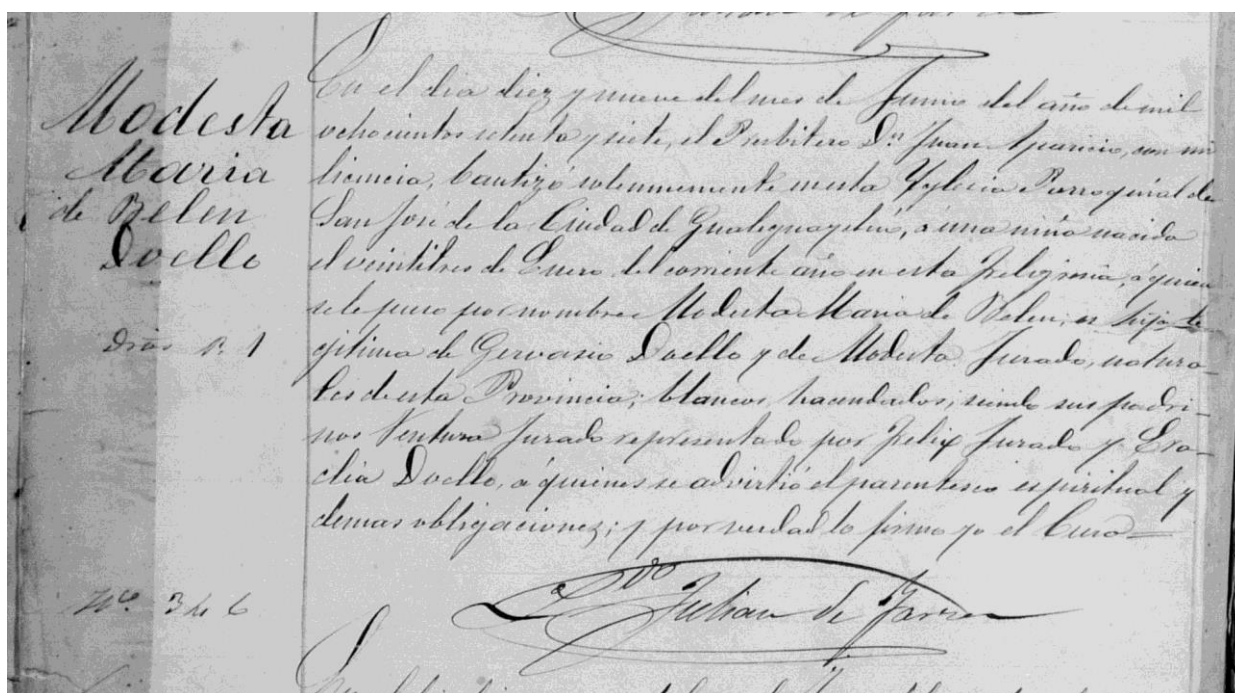 Modesta
Maria
de Belen
Doello
En el dia diez y nueve del mes de Junio del año de mil
ochocientos setenta y siete, el Presbitero Dn. Juan Aparicio, con mi
licencia, bautizó solemnemente en esta Yglesia Parroquial de
San Jose de la Ciudad de Gualeguaychú, á una niña nacida
el veintitres de Enero del corriente año en esta Feligresia, á quien
se le puso por nombre Modesta Maria de Belen, es hija le
gitima de Gervasio Doello y de Modesta Jurado, natura-
les de esta Provincia; blancos, hacendados; siendo sus padri-
nos Ventura Jurado representado por Felix Jurado y Era-
clia Doello, á quienes se advirtió el parentesco espiritual y
demas obligaciones; y por verdad lo firmo yo el Cura=
Julian de